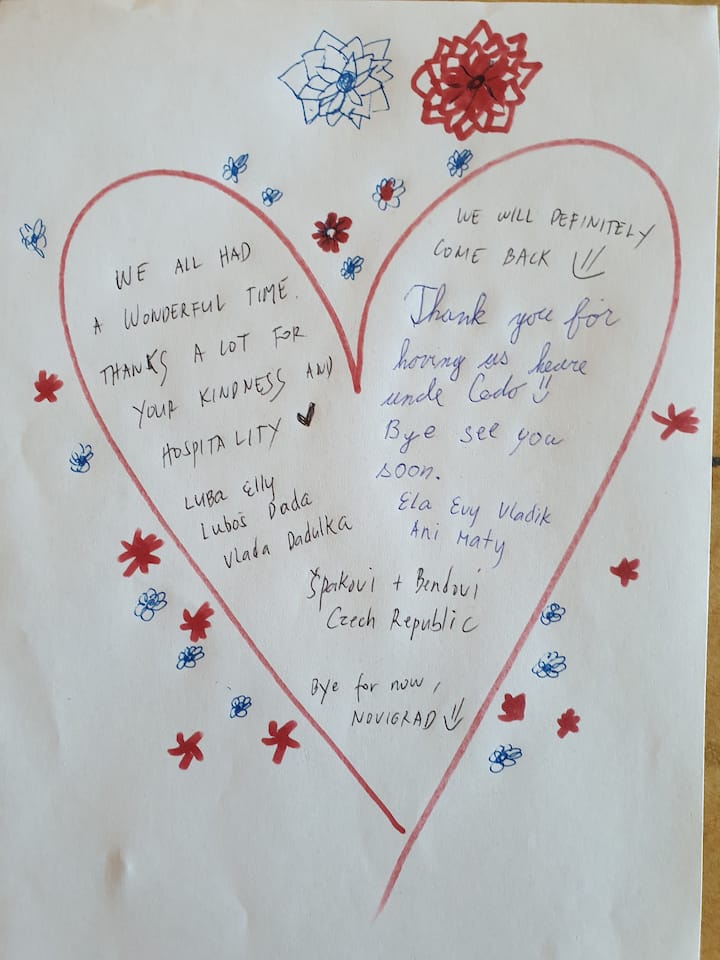 WE ALL HAD
A WONDERFUL TIME.
THANKS A LOT FOR
YOUR KINDNESS AND
HOSPITALITY
LUBA Elly
Luboš Dada
Vlada Dadulka
WE WILL DEFINITELY
COME BACK
Thank you for
hoving us heare
uncle Cedo
Bye see you
soon.
Ela Evy Vladik
Ani Maty
Špakovi + Bendovi
Czech Republic
Bye for now,
NOVIGRAD